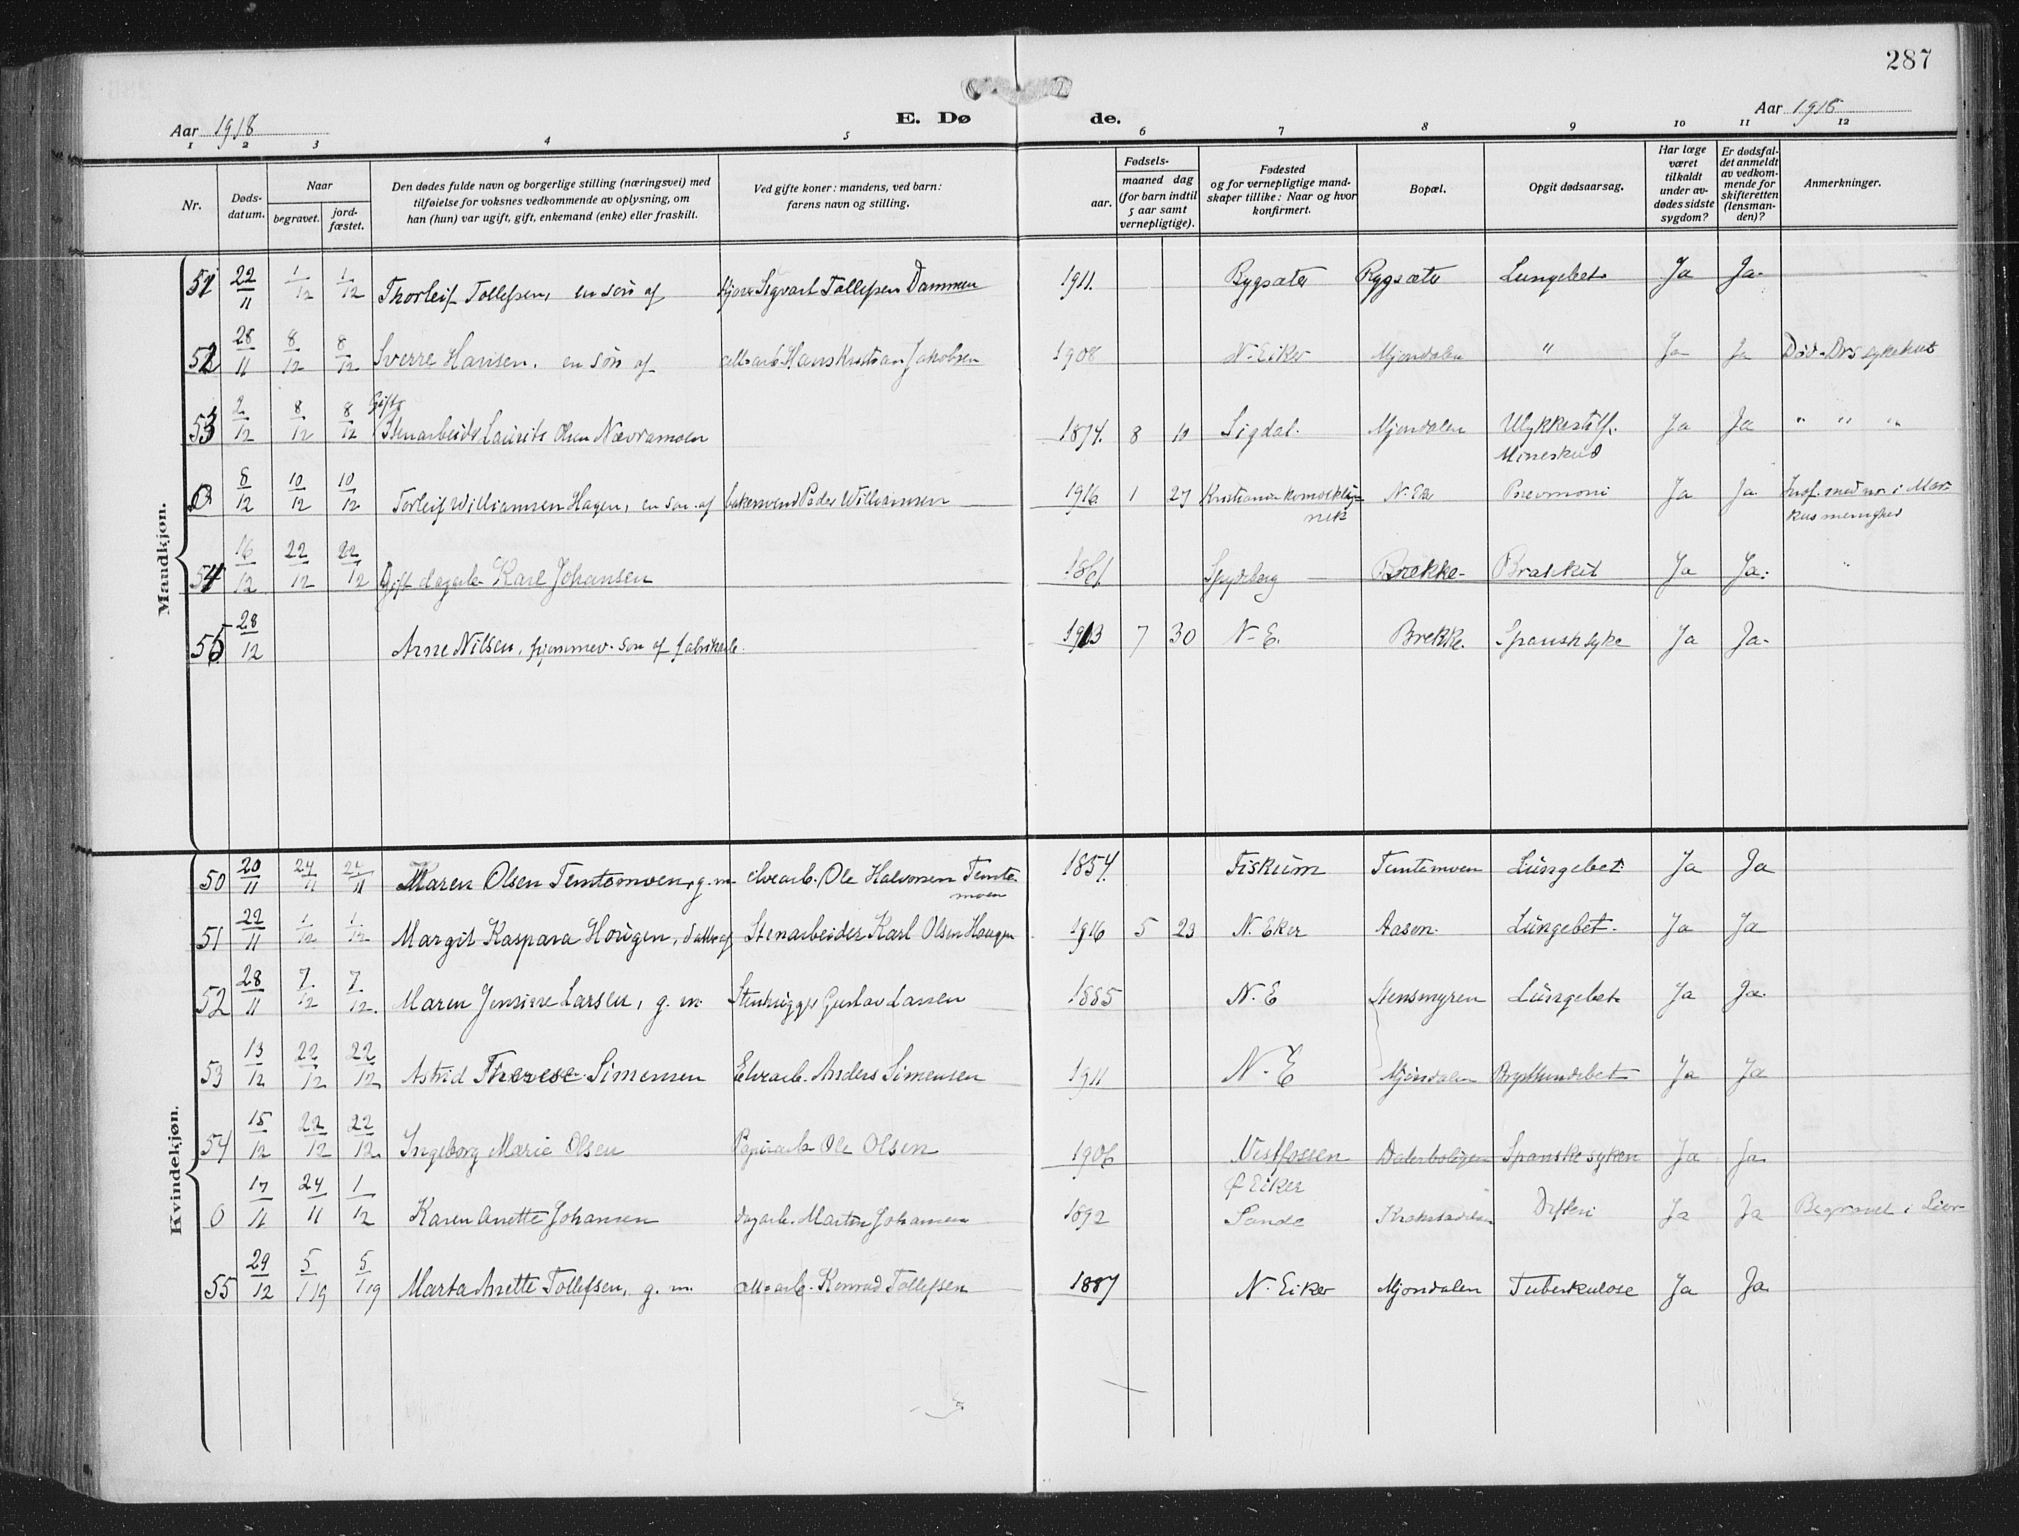 287
Aar 1918
E. Dø de.
Aar 1918
1 2 3 4 5 6 7 8 9 10 11 12
Nr.
Døds-
datum.
Naar
begravet.
jord-
fæstet.
Den dødes fulde navn og borgerlige stilling (næringsvei) med
tilføielse for voksnes vedkommende av oplysning, om
han (hun) var ugift, gift, enkemand (enke) eller fraskilt.
Ved gifte koner: mandens, ved barn:
farens navn og stilling.
Fødsels-
aar.
maaned dag
(for barn indtil
5 aar samt
vernepligtige).
Fødested
og for vernepligtige mand-
skaper tillike: Naar og hvor
konfirmert.
Bopæl.
Opgit dødsaarsag.
Har læge
været
tilkaldt
under av-
dødes sidste
sygdom?
Er dødsfal-
det anmeldt
av vedkom-
mende for
skifteretten
(lensman-
den)?
Anmerkninger.
Mandkjøn.
51 22/11 1/12 1/12 Thorleif Tollefsen, en søn af Sigvart Tollefsen Dammen 1911. Rygsæter Rygsæter Lungebet. Ja Ja.
52 28/11 8/12 8/12 Sverre Hansen, en søn af Hans Kristian Jakobsen 1908 N. Eiker Mjøndalen " Ja Ja Død Drs sykehus
Gift
53 2/12 8/12 8/12 Stenarbeider Laurits Olsen Nævramoen 1874. 8 10 Sigdal. Mjøndalen Ulykkestilf. Ja Ja " " "
Mineskud
0 8/12 10/12 10/12 Torleif Williamsen Hagen, en søn af bakersvend Peder Williamsen 1916 1 27 Kristiania N. Ek Pnevmoni Ja Ja i Mar-
nik kus menighed
54 16/12 22/12 22/12 Gift dagarb. Karl Johansen 1861 Spydeberg Brekke Ja Ja. "
55 28/12 Arne Nilsen, søn af fabrikarb. 1913 7 30 N. E. Brekke. Spansk syke Ja Ja.
Kvindekjøn.
50 20/11 24/11 24/11 Maren Olsen Temtemoen, g. m. elvearb. Ole Halvorsen Temte- 1857. Fiskum Temtemoen Lungebet. Ja Ja
moen
51 22/11 1/12 1/12 Margit Kaspara Hougen, datter af Stenarbeider Karl Olsen Hougen 1916 5 23 N. Eker Aasen. Lungebet. Ja Ja
52 28/11 7/12 7/12. Maren Jensine Larsen, g. m. Stenhugger Gustav Larsen 1885 N. E Stensmyren Lungebet. Ja Ja.
53 13/12 22/12 22/12 Astrid Therese Simensen Elvearb. Anders Simensen 1911 N. E Mjøndalen Brysthindebet. Ja Ja
54 15/12 22/12 22/12. Ingeborg Marie Olsen Papirarb. Ole Olsen 1906 Vestfossen Dalerboligen Spanske syken Ja Ja.
Ø Eiker
0 17/11 24/11 1/12 Karen Anette Johansen dagarb. Martin Johansen 1892 Sande Krokstadelva Difteri Ja Ja Begravet i Lier
55 29/12 5/1 19 5/1 19 Marta Anette Tollefsen, g. m. Konrad Tollefsen 1887 N. Eiker Mjøndalen Tuberkulose Ja Ja